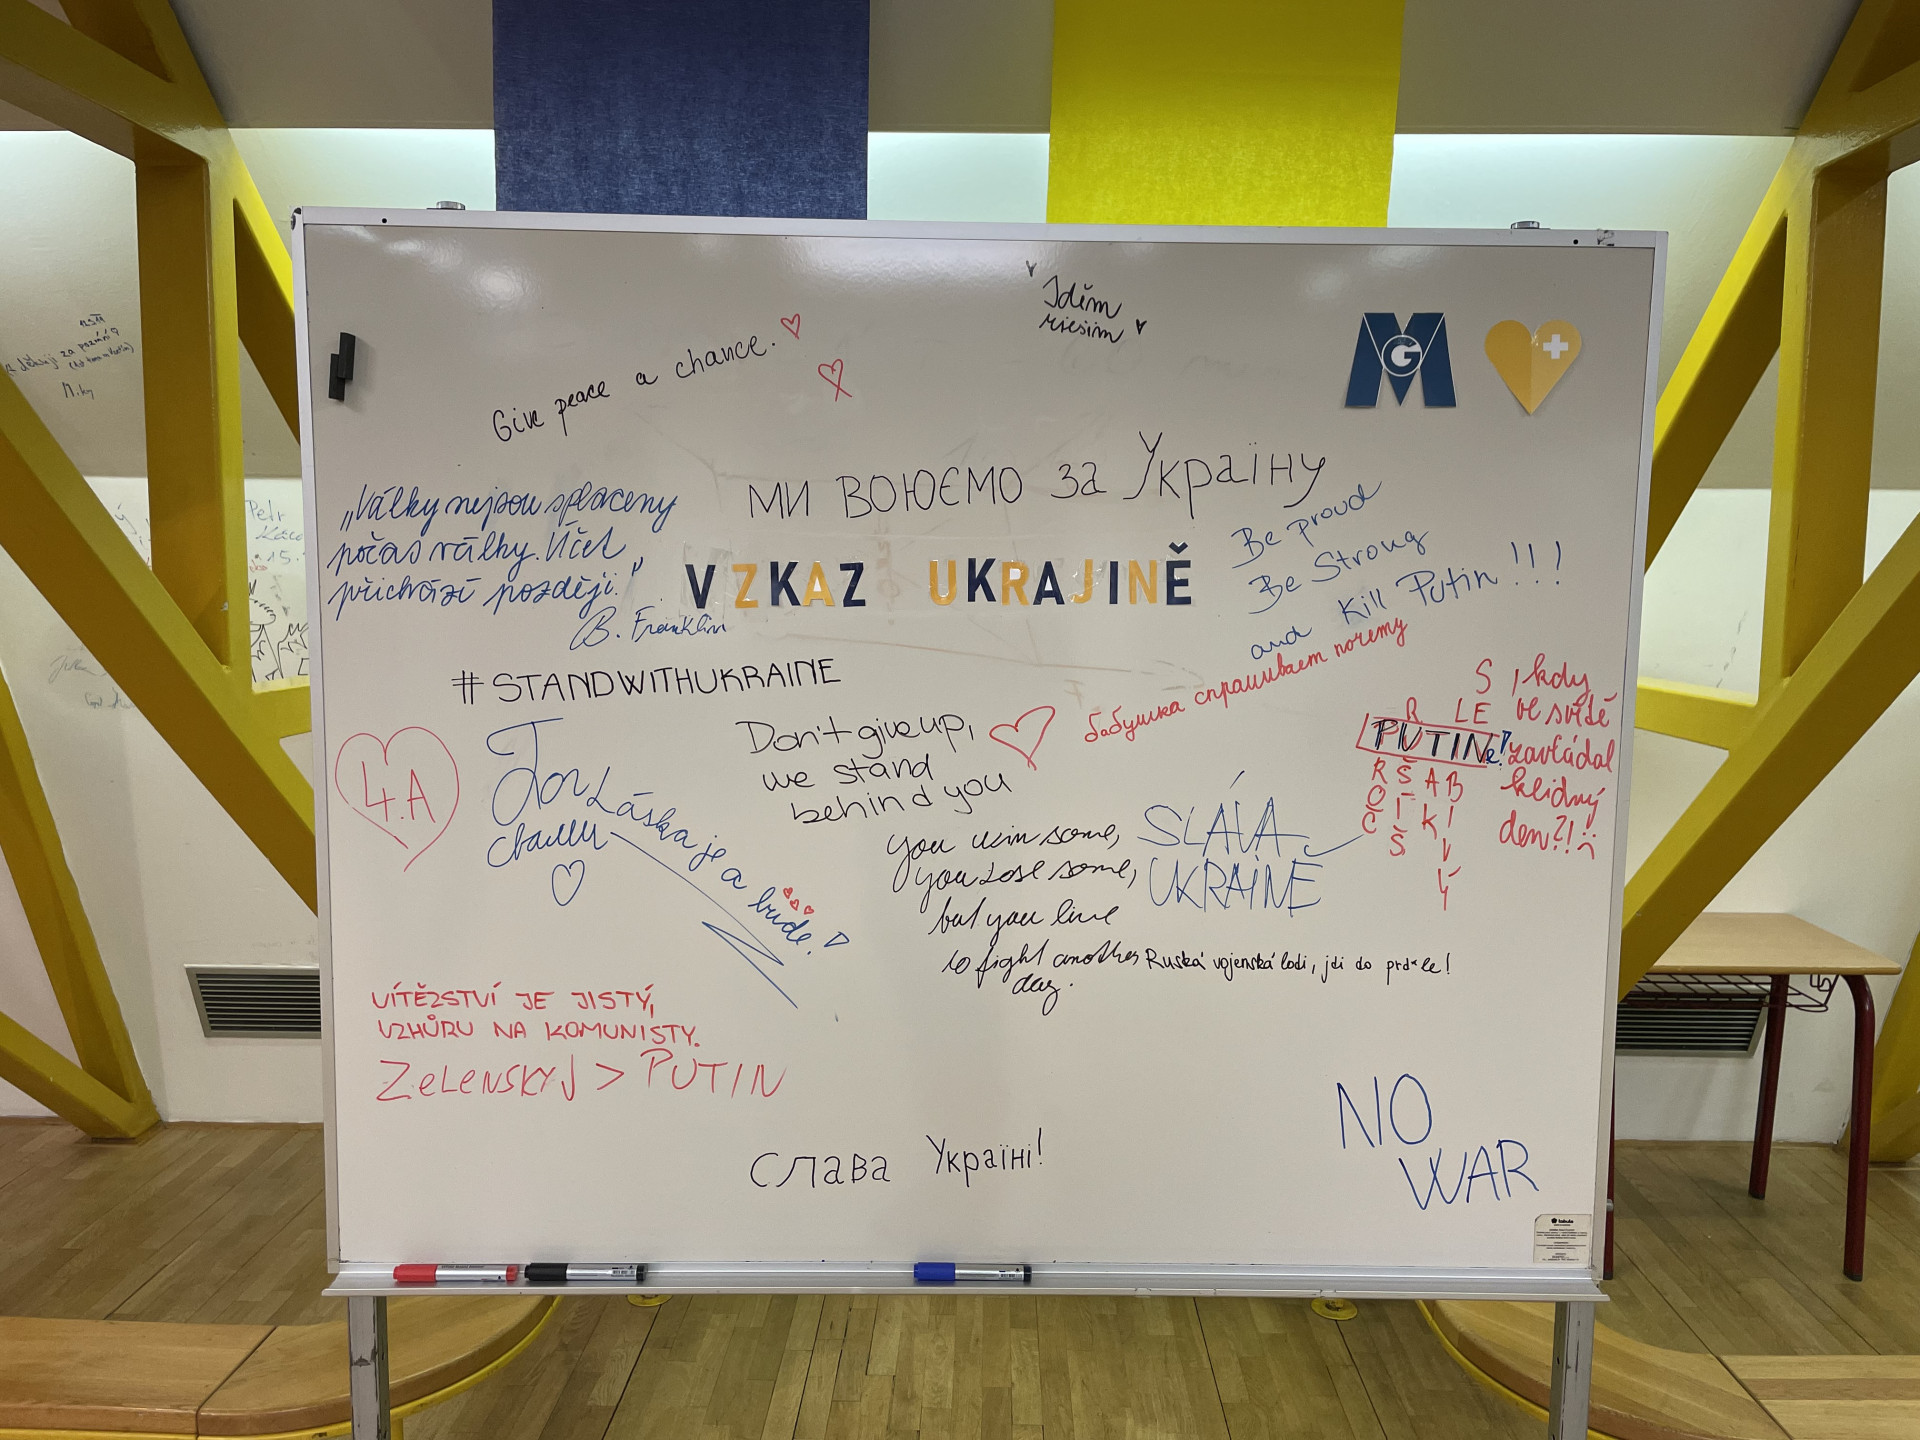 Jdĕm
riesim
Give peace a chance.
M
G
ми воюємо за Україну
„Války nejsou splaceny
počas války. Účet
přichází později."
B. Franklin
VZKAZ UKRAJINĚ
Be proud
Be Strong
and Kill Putin!!!
#STANDWITHUKRAINE
бабушка спрашиваем почему
4.A
Láska je a bude!
Don't give up,
we stand
behind you
You win some,
you lose some,
but you live
to fight another
day.
SLÁVA
UKRAINĚ
S
R LE
PUTINe!
R Š A B
O Í K I
Č Š V
Ý
, kdy
ve světě
zavládal
klidný
den?!
Ruská vojenská lodi, jdi do prd*le!
VÍTĚZSTVÍ JE JISTÝ,
VZHŮRU NA KOMUNISTY.
ZELENSKYJ > PUTIN
Слава Україні!
NO
WAR
Petr
Miky
tabula